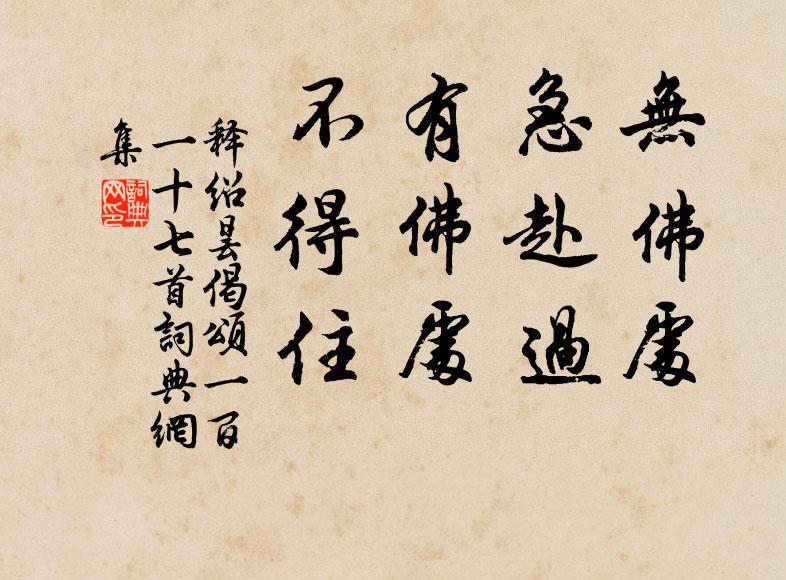 無佛處
急赴過
有佛處
不得住
释紹昙偈頌一百
一十七首詞典網
集
詞典网印